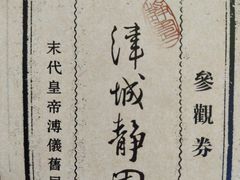 參觀券
津城静園
末代皇帝溥儀舊